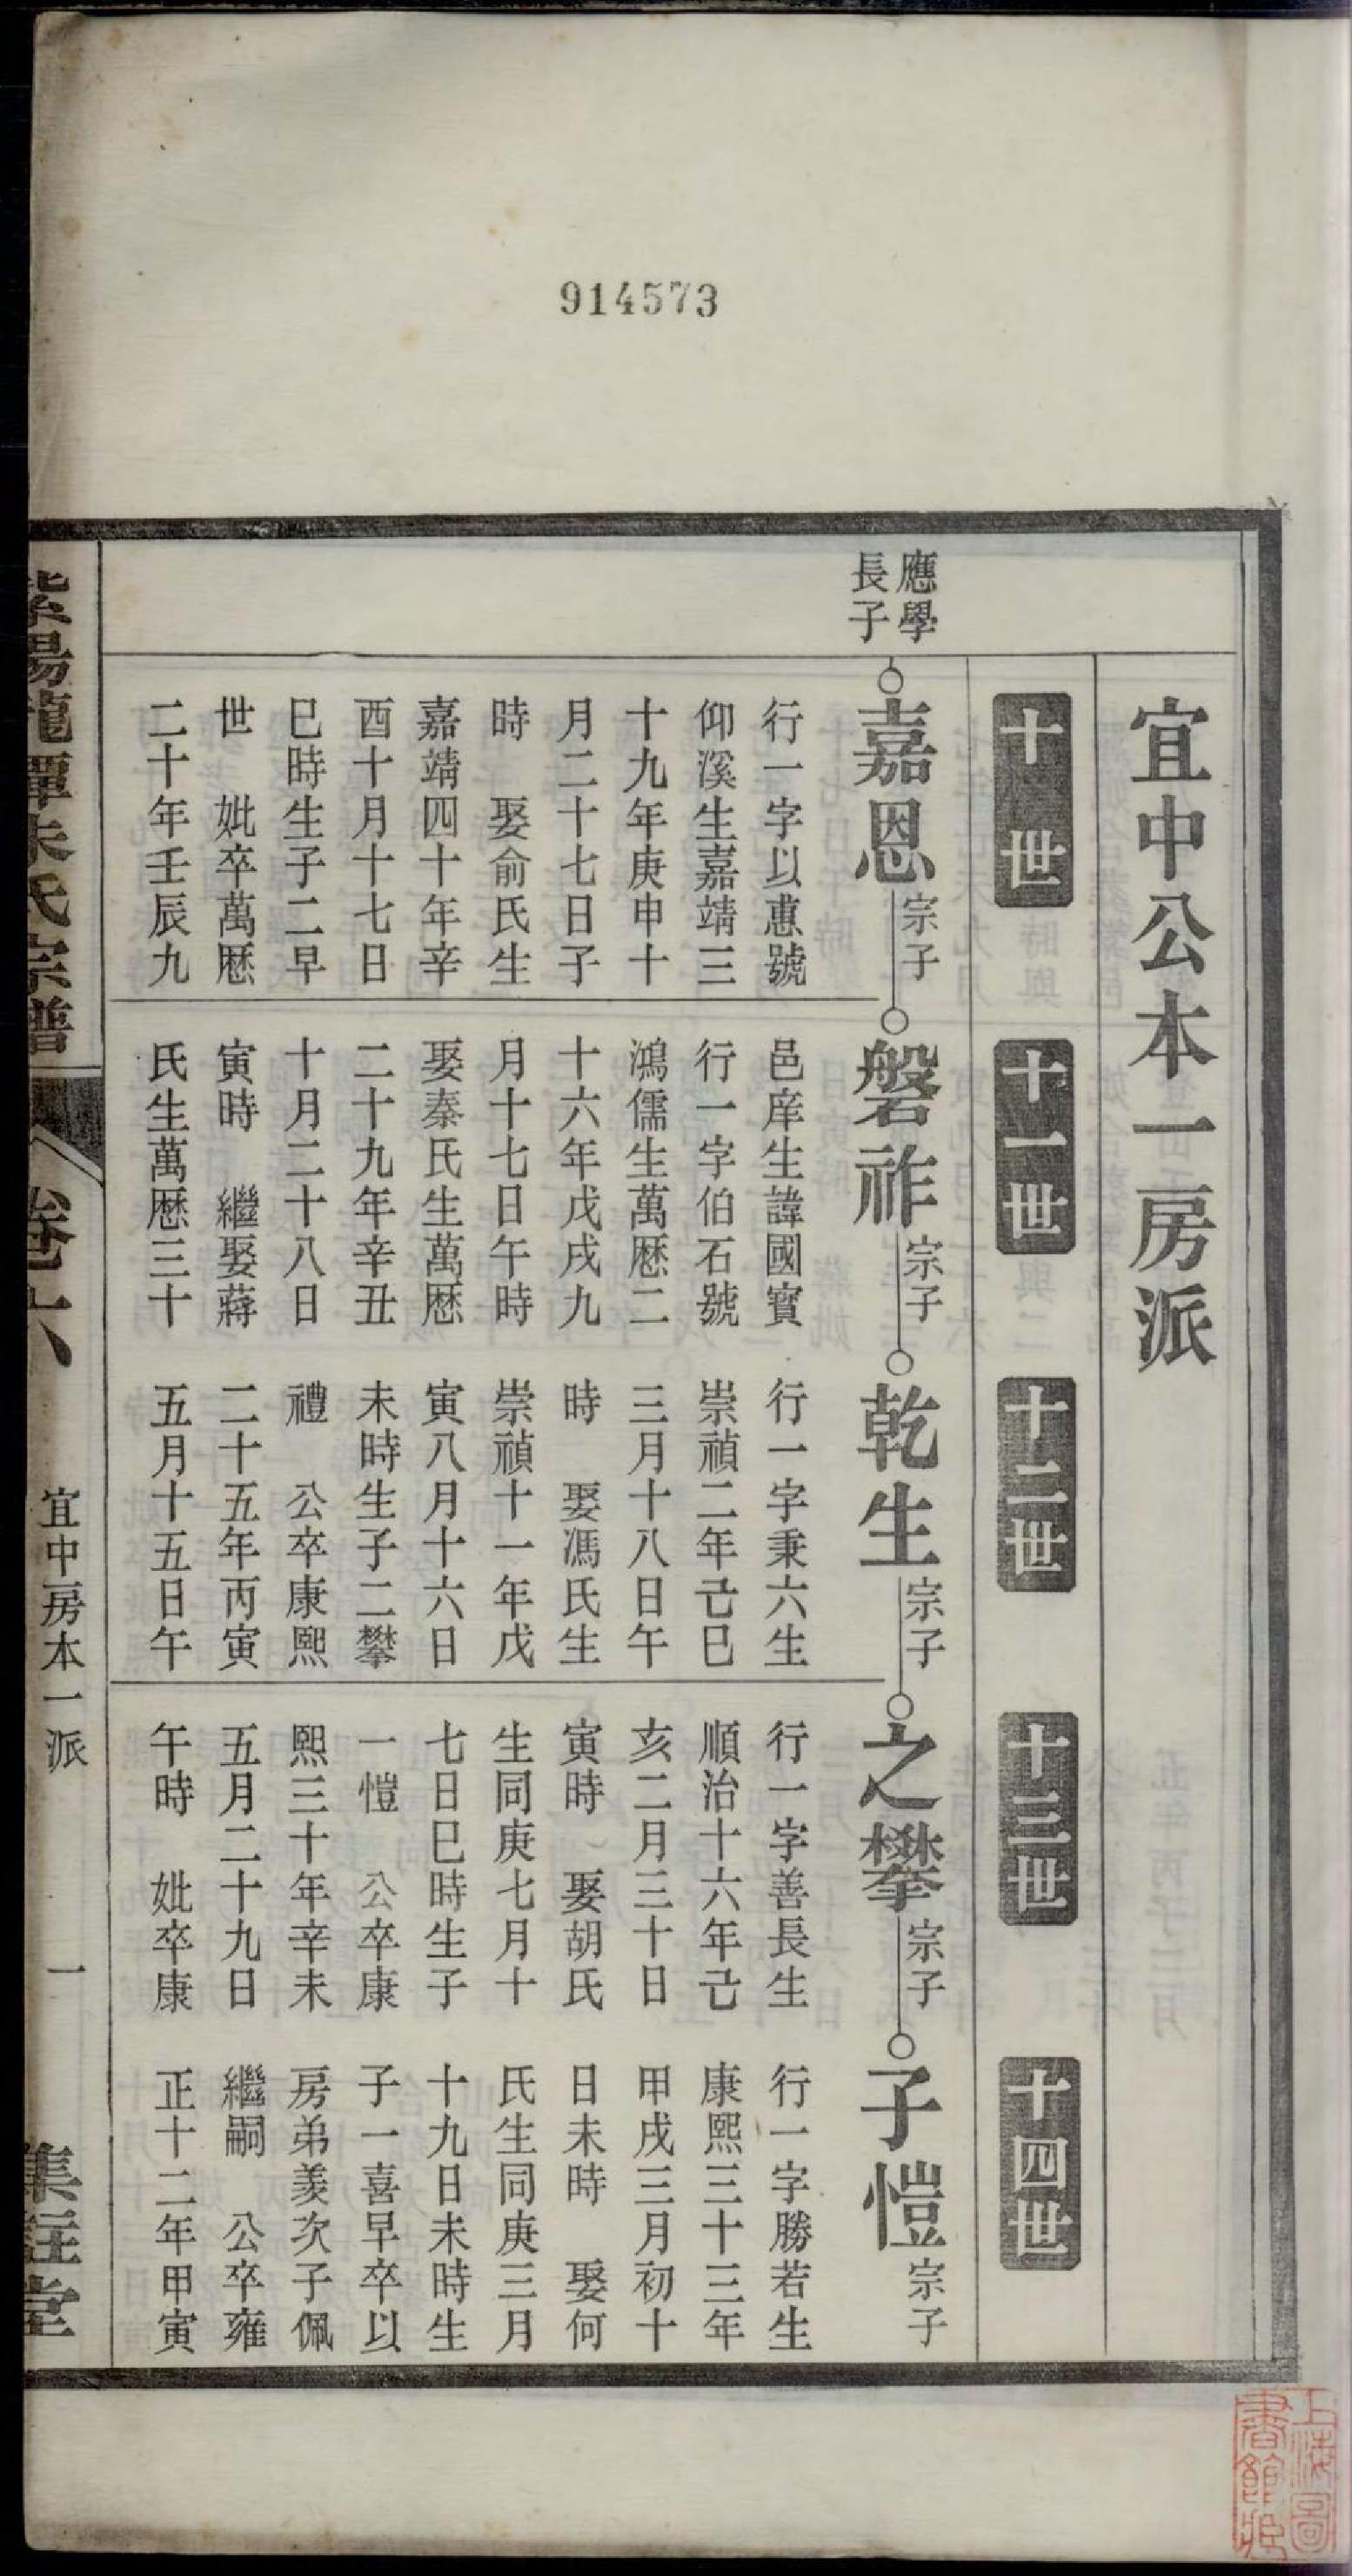 914573
宜中公本一房派
十世
十一世
十二世
十三世
十四世
應學
長子
嘉恩 宗子
行一字以惠號
仰溪生嘉靖三
十九年庚申十
月二十七日子
時 娶俞氏生
嘉靖四十年辛
酉十月十七日
巳時生子二早
世 妣卒萬厯
二十年壬辰九
磐祚 宗子
邑庠生諱國寶
行一字伯石號
鴻儒生萬厯二
十六年戊戌九
月十七日午時
娶秦氏生萬厯
二十九年辛丑
十月二十八日
寅時 繼娶蔣
氏生萬厯三十
乾生 宗子
行一字秉六生
崇禎二年己巳
三月十八日午
時 娶馮氏生
崇禎十一年戊
寅八月十六日
未時生子二攀
禮 公卒康熙
二十五年丙寅
五月十五日午
之攀 宗子
行一字善長生
順治十六年己
亥二月三十日
寅時 娶胡氏
生同庚七月十
七日巳時生子
一愷 公卒康
熙三十年辛未
五月二十九日
午時 妣卒康
子愷 宗子
行一字勝若生
康熙三十三年
甲戌三月初十
日未時 娶何
氏生同庚三月
十九日未時生
子一喜早卒以
房弟羙次子佩
繼嗣 公卒雍
正十二年甲寅
紫陽龍潭朱氏宗譜 卷六 宜中房本一派 一 集註堂
上海圖
書館藏